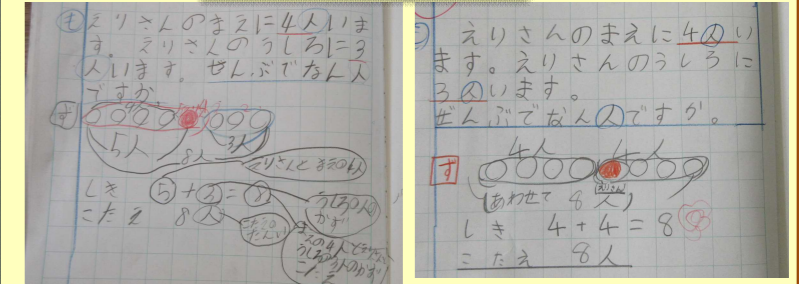 も えりさんのまえに4人いま
す。えりさんのうしろに3
人います。ぜんぶでなん人
ですか。
ず
5人
3人
8人
えりさんとまえの人
しき 5+3=8
うしろの人の
かず
こたえ 8人
えりさんのまえに4人い
ます。えりさんのうしろに
3人います。
ぜんぶでなん人ですか。
4人 4人
ず
えりさん
(あわせて 8人)
しき 4+4=8
こたえ 8人